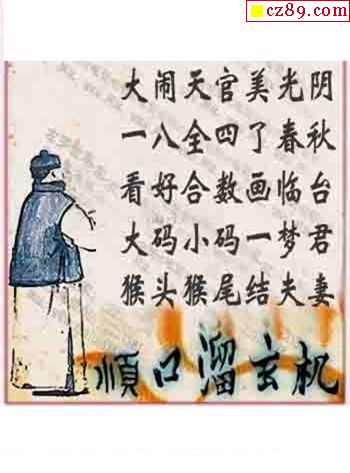 cz89.com
大闹天官美光阴
一八全四了春秋
看好合数画临台
大码小码一梦君
猴头猴尾结夫妻
顺口溜玄机